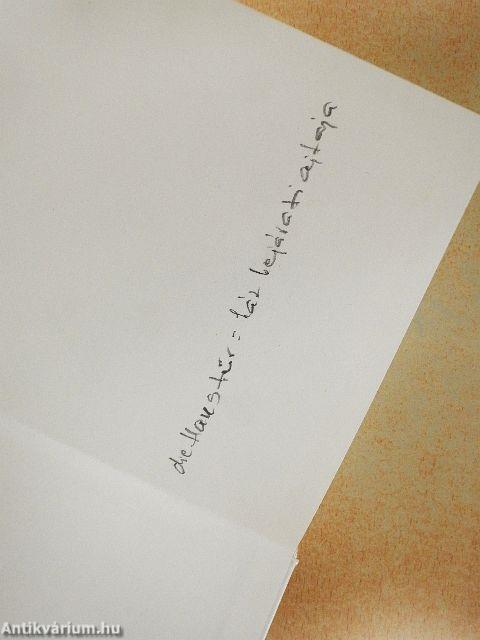 die Haustür = ház bejárati ajtaja
Antikvárium.hu